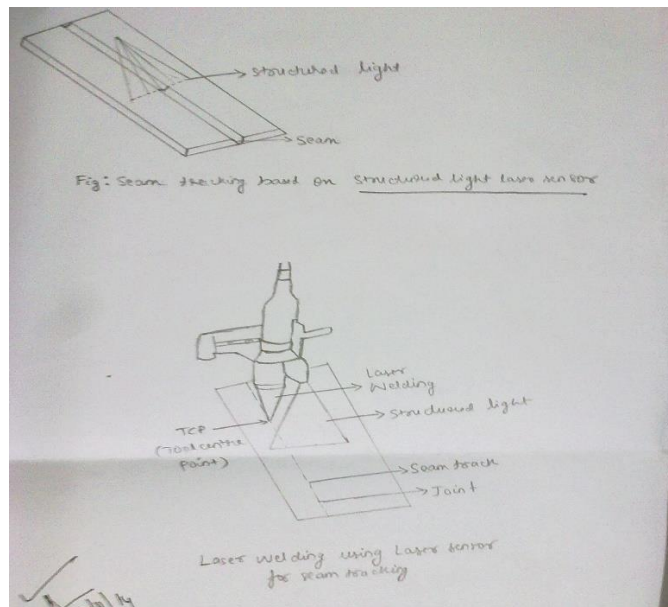 structured light
seam
Fig: Seam tracking based on structured light laser sensor
Laser
Welding
structured light
TCP
(Tool centre
point)
Seam track
Joint
Laser Welding using Laser sensor
for seam tracking